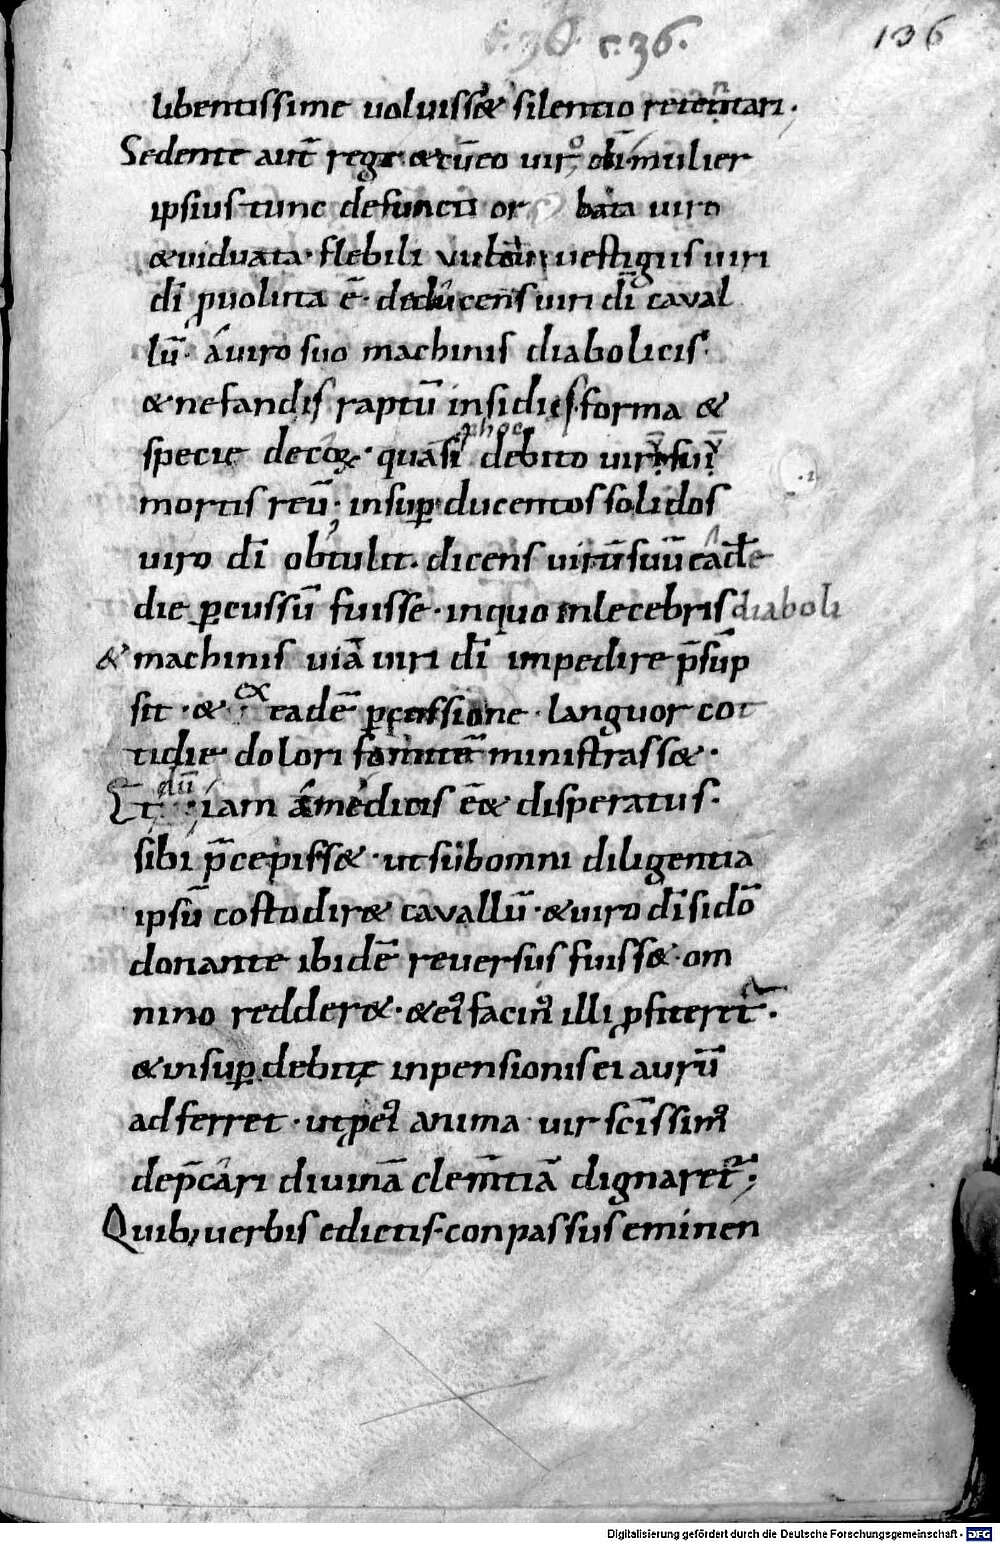 c. 36. c. 36.
136
libentissime voluiss& silentio retentari.
Sedente aut̄ rege & cū eo viro dī mulier
ipsius tunc defuncti or bata viro
& viduata. flebili vultu vestigiis viri
dī pvoluta ē. deducens viri dī caval
lū. a viro suo machinis diabolicis.
& nefandis raptū insidiis. forma &
specie decoꝝ. quasi phoc debito viri sui
mortis reū. insuꝑ ducentos solidos
viro dī obtulit. dicens virū suū ea de
die ꝑcussū fuisse. inquo inlecebris diaboli
& machinis viā viri dī impedire p̄sūp
sit. & ex eadē ꝑcussione. languor cot
tidie dolori fomitē ministrass&.
Et dū iam a medicis ē& disperatus.
sibi p̄cepiss&. ut sub omni diligentia
ipsū costodir& cavallū. & viro dī si dō
donante ibidē reversus fuiss&. om
nino redder&. & ei facin' illi ꝓfiteret̄.
& insuꝑ debitę inpensionis ei aurū
adferret. ut ꝑ ei anima vir scīssim'
dep̄cari divinā clem̄tiā dignaret̄;
Quib; verbis edictis. conpassus eminen
Digitalisierung gefördert durch die Deutsche Forschungsgemeinschaft - DFG